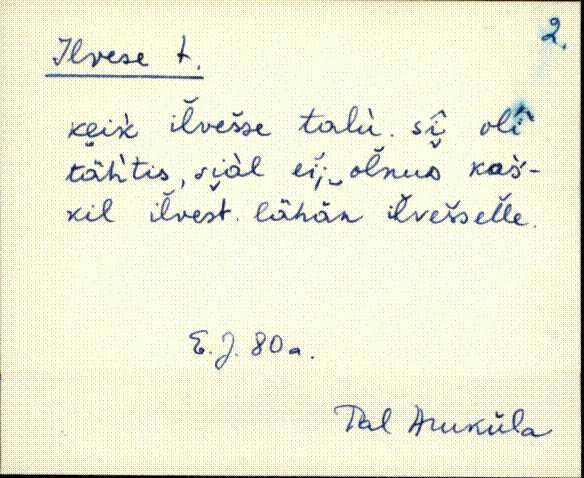 2.
Ilvese t.
keik̀ il̆vešse talù. sî olì
täh̀tis, siàl ei̯ ol̆nuᴅ kos̆-
kil il̆vest. lähän il̆vešsel̆le.
E.J. 80a.
Pal Aruküla